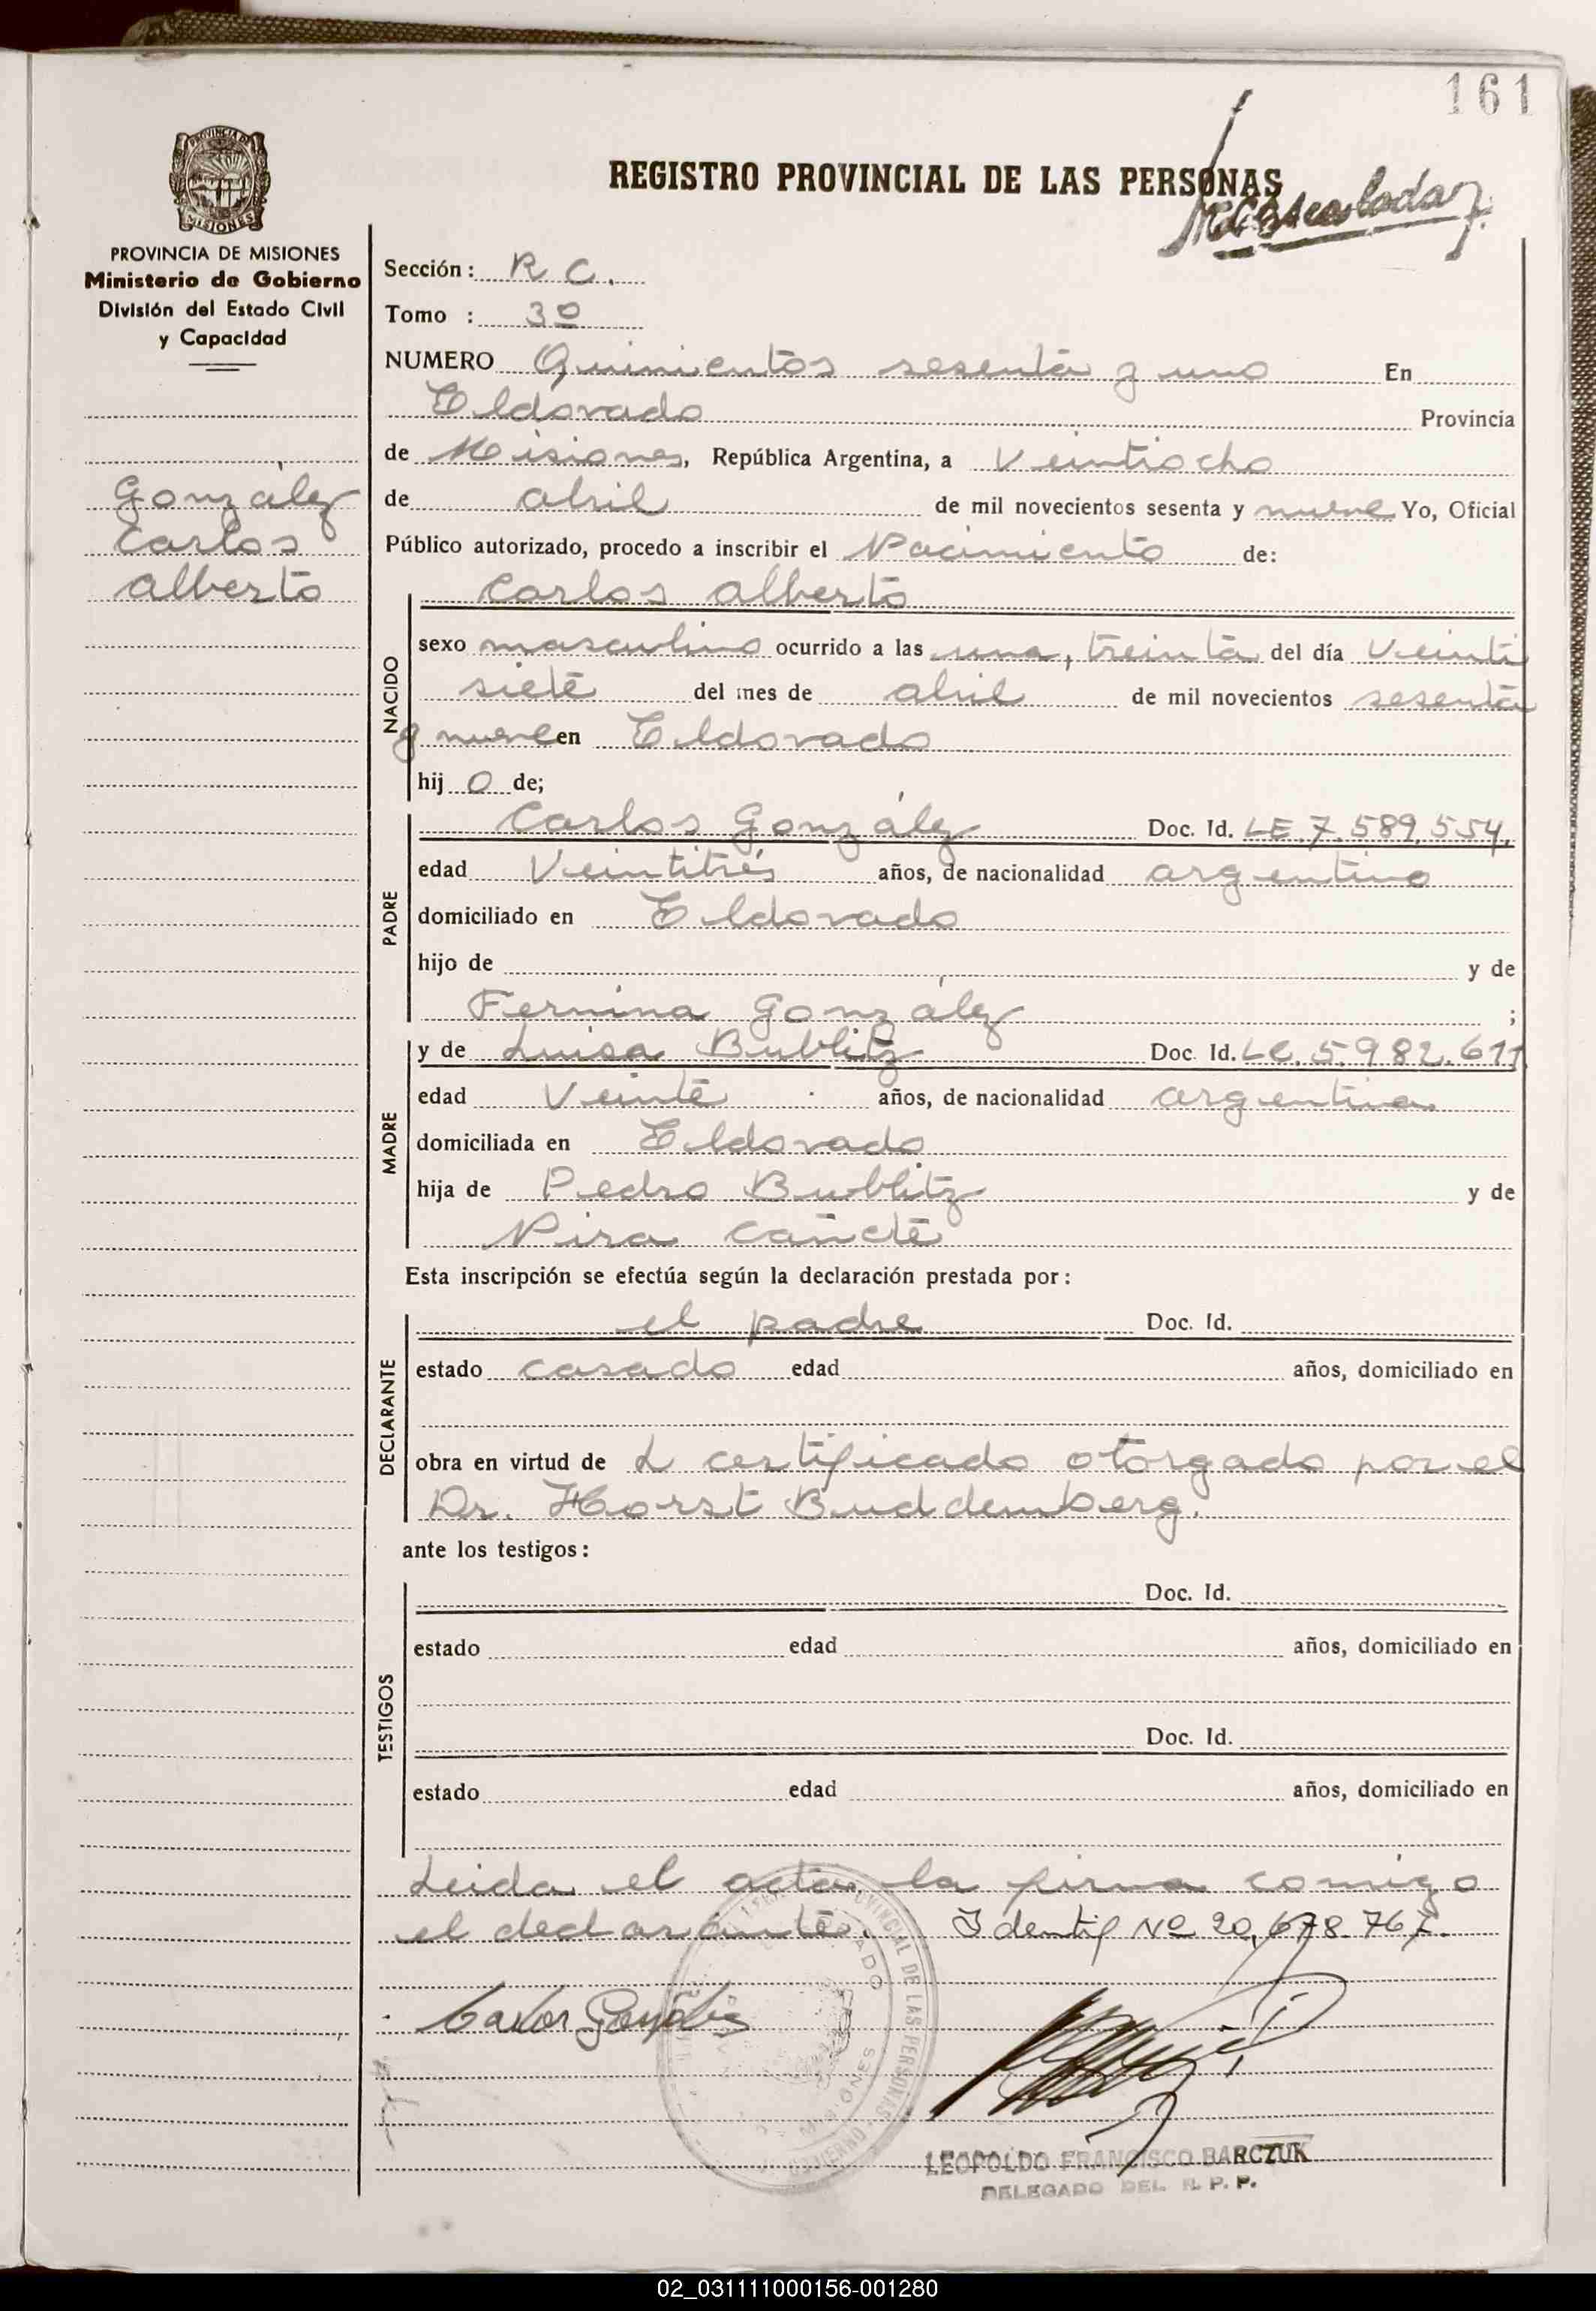 161
REGISTRO PROVINCIAL DE LAS PERSONAS
PROVINCIA DE MISIONES
Ministerio de Gobierno
División del Estado Civil
y Capacidad
González
Carlos
Alberto
Sección: R C.
Tomo : 3º
NUMERO Quinientos sesenta y uno En
Eldorado Provincia
de Misiones, República Argentina, a Veintiocho
de abril de mil novecientos sesenta y nueve Yo, Oficial
Público autorizado, procedo a inscribir el Nacimiento de:
Carlos Alberto
NACIDO
sexo masculino ocurrido a las una, treinta del día Veinti
siete del mes de abril de mil novecientos sesenta
y nueve en Eldorado
hij o de;
PADRE
Carlos González Doc. Id. LE.7.589.554.
edad Veintitrés años, de nacionalidad argentino
domiciliado en Eldorado
hijo de y de
Fermina González ;
MADRE
y de Luisa Bublitz Doc. Id. LC.5.982.611
edad Veinte años, de nacionalidad argentina
domiciliada en Eldorado
hija de Pedro Bublitz y de
Nira Cañete
Esta inscripción se efectúa según la declaración prestada por:
DECLARANTE
el padre Doc. Id.
estado casado edad años, domiciliado en
obra en virtud de L certificado otorgado por el
Dr. Horst Buddemberg.
ante los testigos:
TESTIGOS
Doc. Id.
estado edad años, domiciliado en
Doc. Id.
estado edad años, domiciliado en
Leida el acta, la firma comigo
el declarante. Identif Nº 20,678.767.
Carlos González
LEOPOLDO FRANCISCO BARCZUK
DELEGADO DEL R. P. P.
02_031111000156-001280